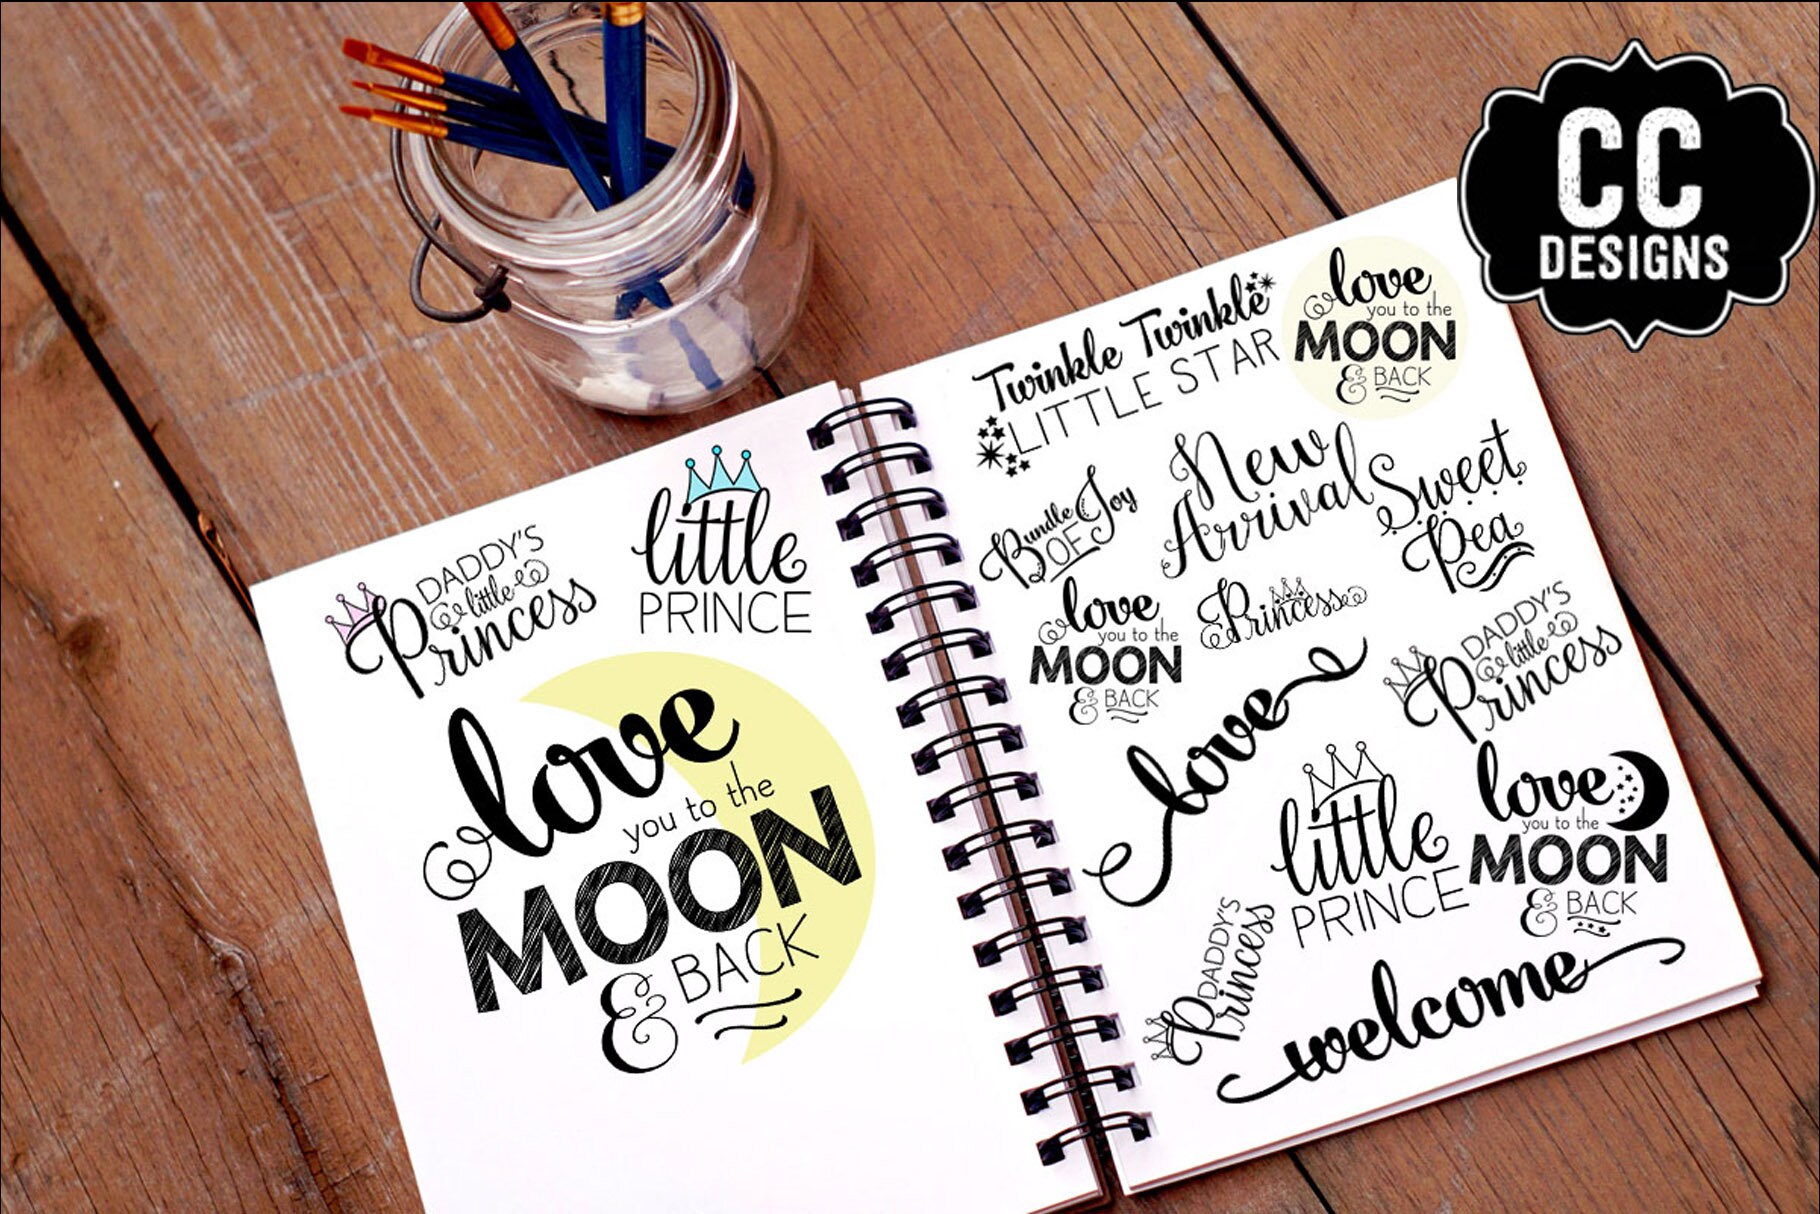 CC
DESIGNS
DADDY'S
little
Princess
little
PRINCE
love
you to the
MOON
& BACK
Twinkle Twinkle
LITTLE STAR
love
you to the
MOON
& BACK
Bundle
OF Joy
New
Arrival
Sweet
Pea
love
you to the
MOON
& BACK
Princess
DADDY'S
little
Princess
love
little
PRINCE
love
you to the
MOON
& BACK
DADDY'S
Princess
welcome